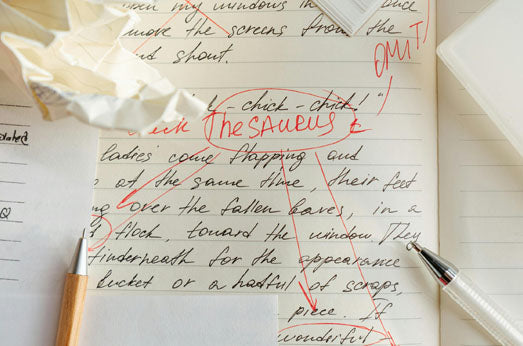 my windows in once
move the screens from the
shout.
OMIT
-chick-chick!"
THESAURUS
ladies come flapping and
at the same time, their feet
over the fallen leaves, in a
flock, toward the window. They
underneath for the appearance
bucket or a hadful of scraps,
piece. If
wonderful